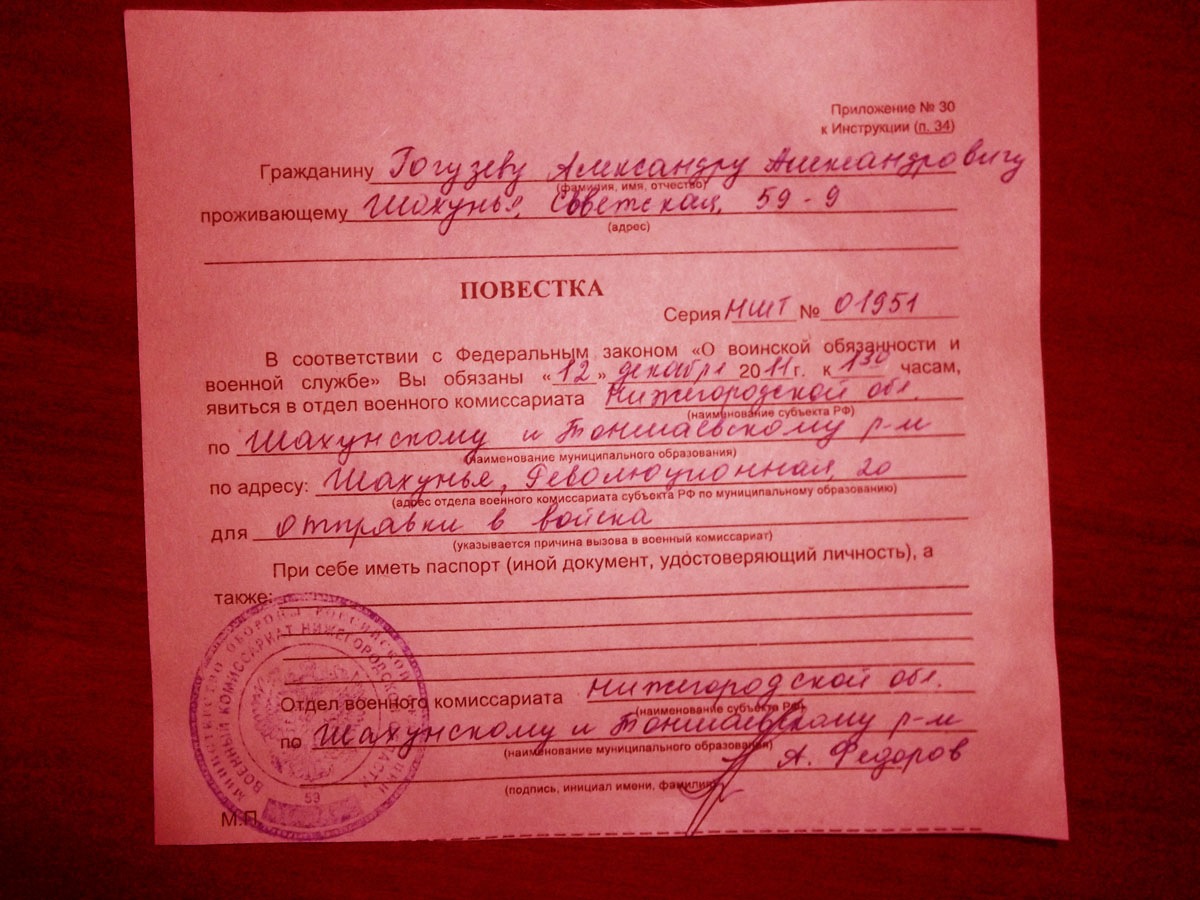 Приложение № 30
к Инструкции (п. 34)
Гражданину Гогузеву Александру Александровичу
(фамилия, имя, отчество)
проживающему Шахунья, Советская, 59-9
(адрес)
ПОВЕСТКА
Серия НШТ № 01951
В соответствии с Федеральным законом «О воинской обязанности и
военной службе» Вы обязаны «12» декабря 2011г. к 1330 часам,
явиться в отдел военного комиссариата Нижегородской обл.
(наименование субъекта РФ)
по Шахунскому и Тоншаевскому р-м
(наименование муниципального образования)
по адресу: Шахунья, Революционная, 20
(адрес отдела военного комиссариата субъекта РФ по муниципальному образованию)
для отправки в войска
(указывается причина вызова в военный комиссариат)
При себе иметь паспорт (иной документ, удостоверяющий личность), а
также:
Отдел военного комиссариата Нижегородской обл.
(наименование субъекта РФ)
по Шахунскому и Тоншаевскому р-м
(наименование муниципального образования)
А. Федоров
(подпись, инициал имени, фамилия)
М.П.
МИНИСТЕРСТВО ОБОРОНЫ РОССИЙСКОЙ
ВОЕННЫЙ КОМИССАРИАТ НИЖЕГОРОДСКОЙ ОБЛАСТИ
53